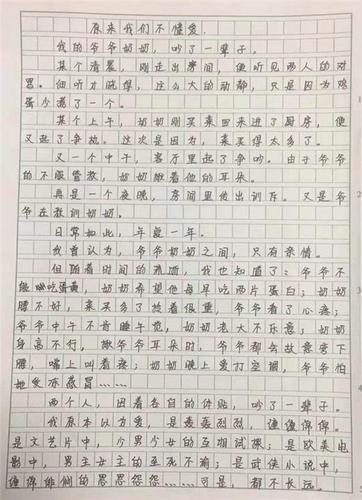 原来我们不懂爱
我的爷爷奶奶，吵了一辈子。
某个清晨，刚走出房间，便听见两人的对
骂。细听才晓得，这么大的动静，只是因为鸡
蛋少煮了一个。
某个上午，奶奶刚买菜回来进了厨房，便
又起了争执。这次是因为，菜买得太多了。
又一个中午，客厅里起了争吵。由于爷爷
的不服管教，奶奶揪着他的耳朵。
再是一个夜晚，房间里传出训斥。又是爷
爷在教训奶奶。
日常如此，年复一年。
我曾认为，爷爷奶奶之间，只有亲情。
但随着时间的流逝，我也知道了：爷爷不
能吃蛋黄，奶奶希望他每早吃两片蛋白；奶奶
腰不好，菜买多了拎着很重，爷爷看了心疼；
爷爷中午不肯睡午觉，奶奶老大不乐意；奶奶
身高不行，揪爷爷耳朵时，爷爷都会故意弯下
腰，嘴上叫着疼；奶奶晚上爱打空调，爷爷怕
她受冻着冒……
两个人，因着各自的体贴，吵了一辈子。
我原本以为爱，是轰轰烈烈，缠缠绵绵。
是文艺片中，少男少女的互相试探；是欧美电
影中，男主女主的至死不渝；是武侠小说中，
缠绵悱恻的恩恩怨怨……可是，都不长远。